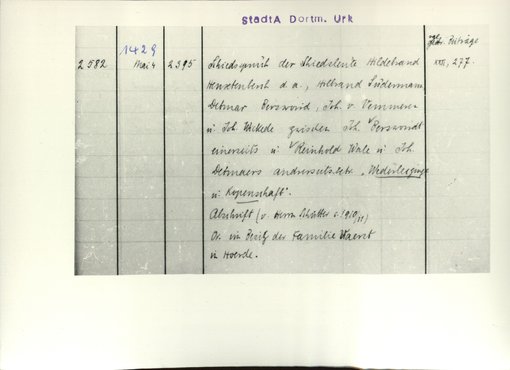 StadtA Dortm. Urk
1429
2582 Mai 4 2395 Schiedsspruch der Schiedsleute Hildebrand
Henxtenberch d. a., Hilbrand Sudermann,
Detmar Bersword, Joh. v. Vemmeren
u. Joh. Wickede zwischen Joh. Berswordt
einerseits u. Reinhold Wale u. Joh.
Detmars andrerseits betr. „Wederlegunge
u. Kopenschaft“.
Abschrift (v. Herrn Schütter c. 1910
Or. im Besitz der Familie
in Hoerde.
Beiträge
XXII, 277.